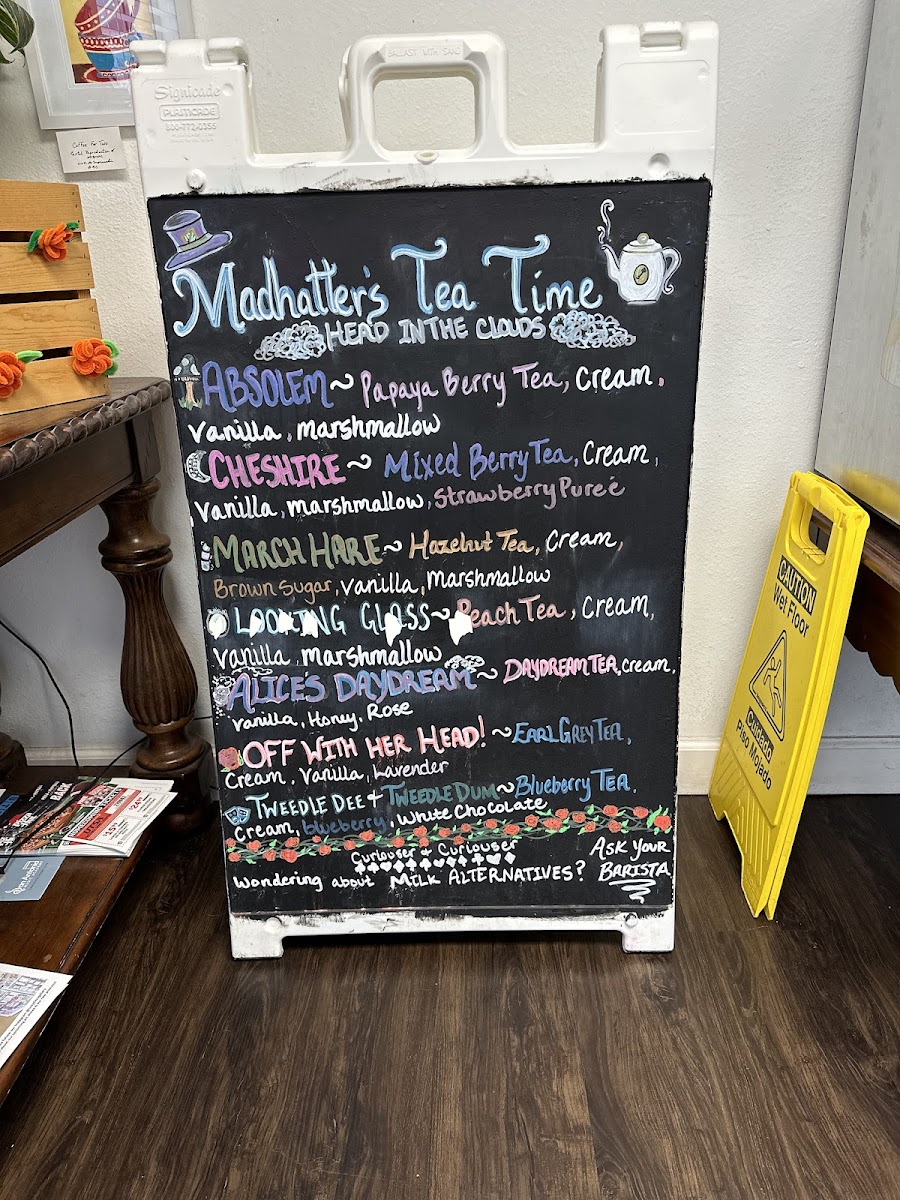 BALLAST WITH SAND
Signicade
PLASTICADE
800-772-0355
Coffee For Two
Madhatter's Tea Time
HEAD IN THE CLOUDS
ABSOLEM~ Papaya Berry Tea, Cream,
Vanilla, marshmallow
CHESHIRE~ Mixed Berry Tea, Cream,
Vanilla, marshmallow, Strawberry Pureé
MARCH HARE~ Hazelnut Tea, Cream,
Brown Sugar, Vanilla, Marshmallow
LOOKING GLASS~ Peach Tea, Cream,
Vanilla, marshmallow
ALICE'S DAYDREAM~ DAYDREAM TEA, cream,
Vanilla, Honey, Rose
OFF WITH HER HEAD! ~ EARL GREY TEA,
Cream, Vanilla, Lavender
TWEEDLE DEE + TWEEDLE DUM~ Blueberry TEA,
Cream, blueberry, White Chocolate
Curiouser & Curiouser
Wondering about MILK ALTERNATIVES? ASK YOUR
BARISTA
CAUTION
Wet Floor
Cuidado
Piso Mojado